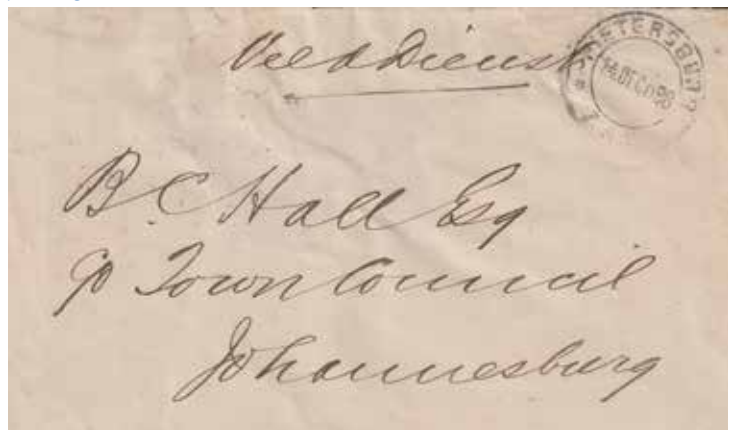 Veld Dienst
PIETERSBURG
14 DEC 98
B.C. Hall Esq
c/o Town Council
Johannesburg